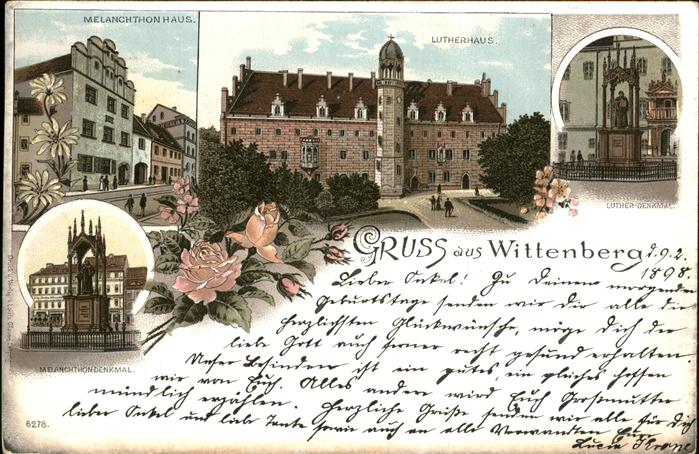 MELANCHTHON HAUS.
LUTHERHAUS.
LUTHER-DENKMAL.
MELANCHTHON-DENKMAL.
GRUSS aus Wittenberg d. 9. 2.
1898.
Lieber Onkel! Zu Deinem morgenden
Geburtstage senden wir Dir alle die
herzlichsten Glückwünsche, möge Dich der
liebe Gott auch ferner recht gesund erhalten.
Unser Befinden ist ein gutes, ein gleiches hoffen
wir von Euch. Alles andere wird Euch Großmutter
mündlich erzählen. Herzliche Grüße senden wir alle für Dich
lieber Onkel und liebe Tante sowie auch an alle Verwandten Eure
Lucie
6278.